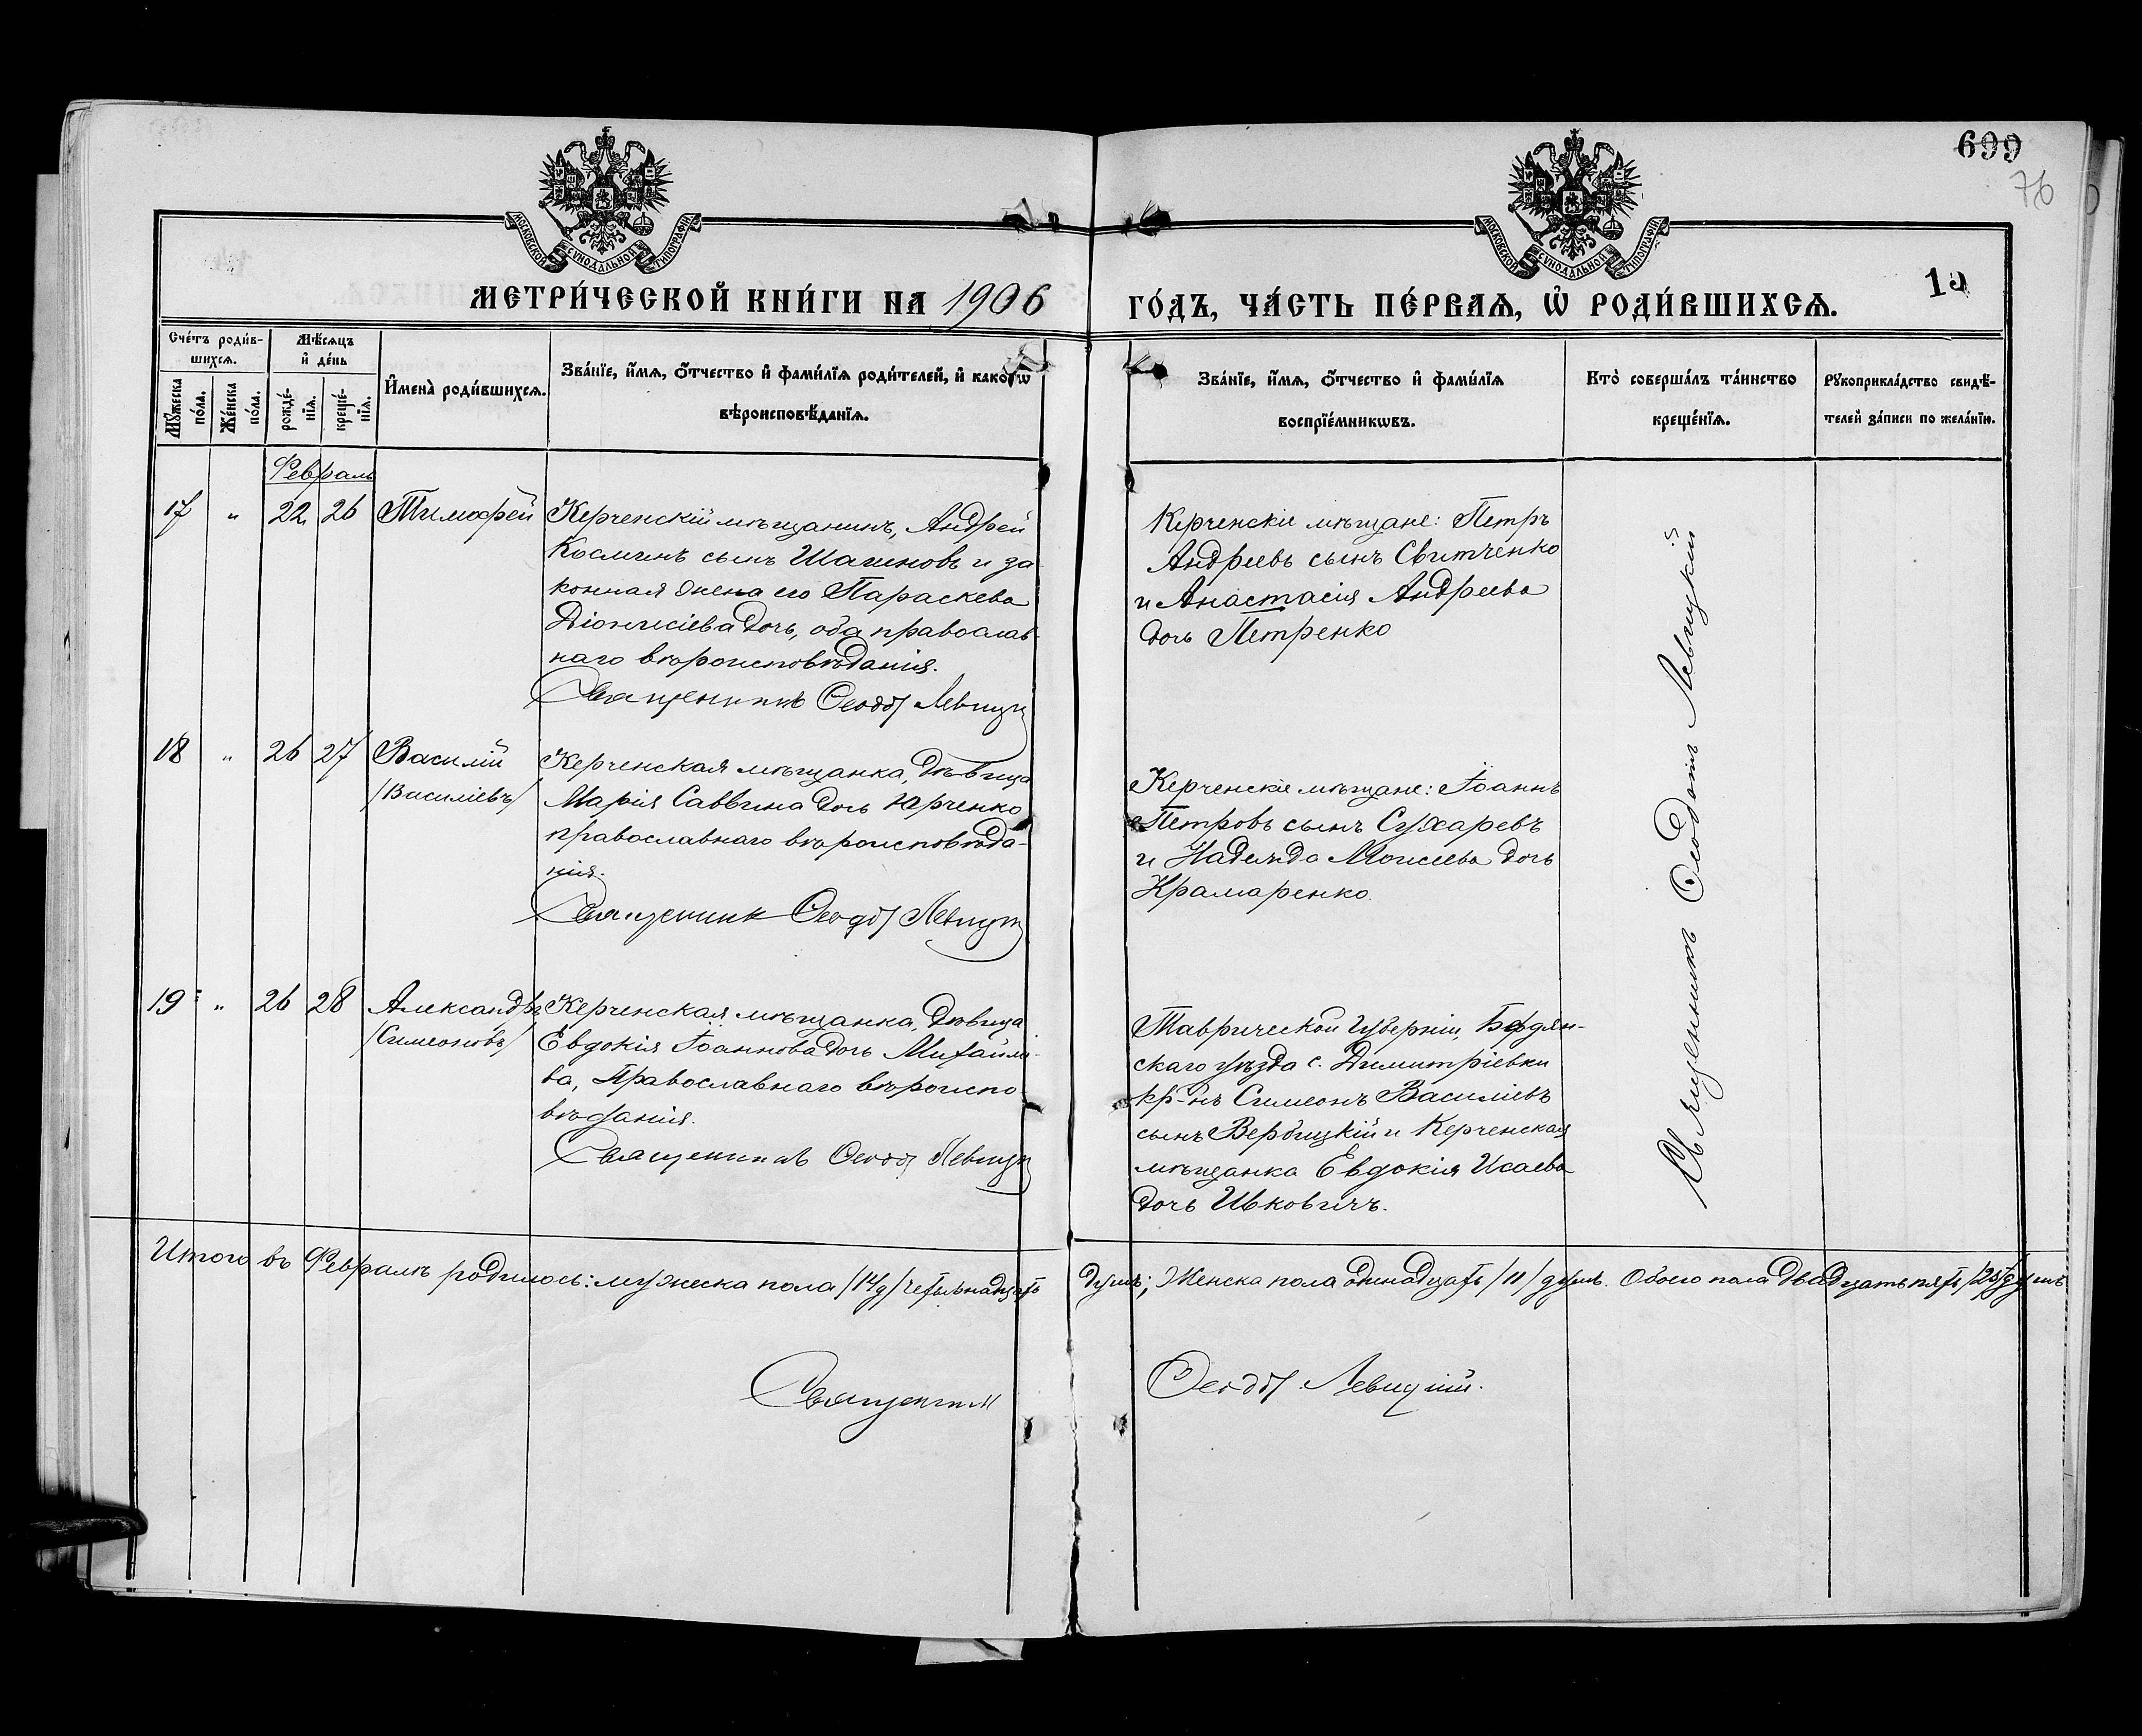 699
76
МОСКОВСКОЙ СѴНОДАЛЬНОЙ ТИПОГРАФІИ
МОСКОВСКОЙ СѴНОДАЛЬНОЙ ТИПОГРАФІИ
МЕТРИ́ЧЕСКОЙ КНИ́ГИ НА 1906
ГО́ДЪ, ЧА́СТЬ ПЕ́РВАѦ, Ѡ҆ РОДИ́ВШИХСѦ.
Сче́тъ роди́в-
шихсѧ.
Мꙋ́жеска
по́ла.
Же́нска
по́ла.
Мѣ́сѧцъ
и҆ де́нь
рожде́-
нїѧ.
креще́-
нїѧ.
И҆мена̀ роди́вшихсѧ.
Зва́нїе, и҆́мѧ, ѻ҆́тчество и҆ фами́лїѧ роди́телей, и҆ како́гѡ
вѣроисповѣ́данїѧ.
Зва́нїе, и҆́мѧ, ѻ҆́тчество и҆ фами́лїѧ
воспрїе́мникѡвъ.
Кто̀ соверша́лъ та́инство
креще́нїѧ.
Рꙋкоприкла́дство свидѣ́-
телей за́писи по жела́нїю.
Февраль
17 " 22 26 Тимофей
Керченскій мѣщанинъ, Андрей
Косминъ сынъ Шагиновъ и за
конная жена его Параскева
Діонисіева дочь, оба православ-
наго вѣроисповѣданія.
Священникъ Ѳеодотъ Левицкій
Керченскіе мѣщане: Петръ
Андреевъ сынъ Свитченко
и Анастасія Андреева
дочь Петренко
18 " 26 27 Василій
/Василіевъ/
Керченская мѣщанка, дѣвица
Марія Саввина дочь Юрченко
православнаго вѣроисповѣда-
нія.
Священникъ Ѳеодотъ Левицкій
Керченскіе мѣщане: Іоаннъ
Петровъ сынъ Сухаревъ
и Надежда Моисеева дочь
Крамаренко.
19 " 26 28 Александръ
/Симеоновъ/
Керченская мѣщанка, дѣвица
Евдокія Іоаннова дочь Михайло-
ва, Православнаго вѣроиспо
вѣданія.
Священникъ Ѳеодотъ Левицкій
Таврической губерніи, Бердян-
скаго уѣзда с. Димитріевки
кр-нъ Симеонъ Василіевъ
сынъ Вербицкій и Керченская
мѣщанка Евдокія Исаева
дочь Ивковичъ.
Священникъ Ѳеодотъ Левицкій
Итого въ Февралѣ родилось: мужеска пола /14/ четырнадцать
душъ; Женска пола одинадцать /11/ душъ. Обоего пола двадцать пять /25/ душъ
Священникъ
Ѳеодотъ Левицкій.